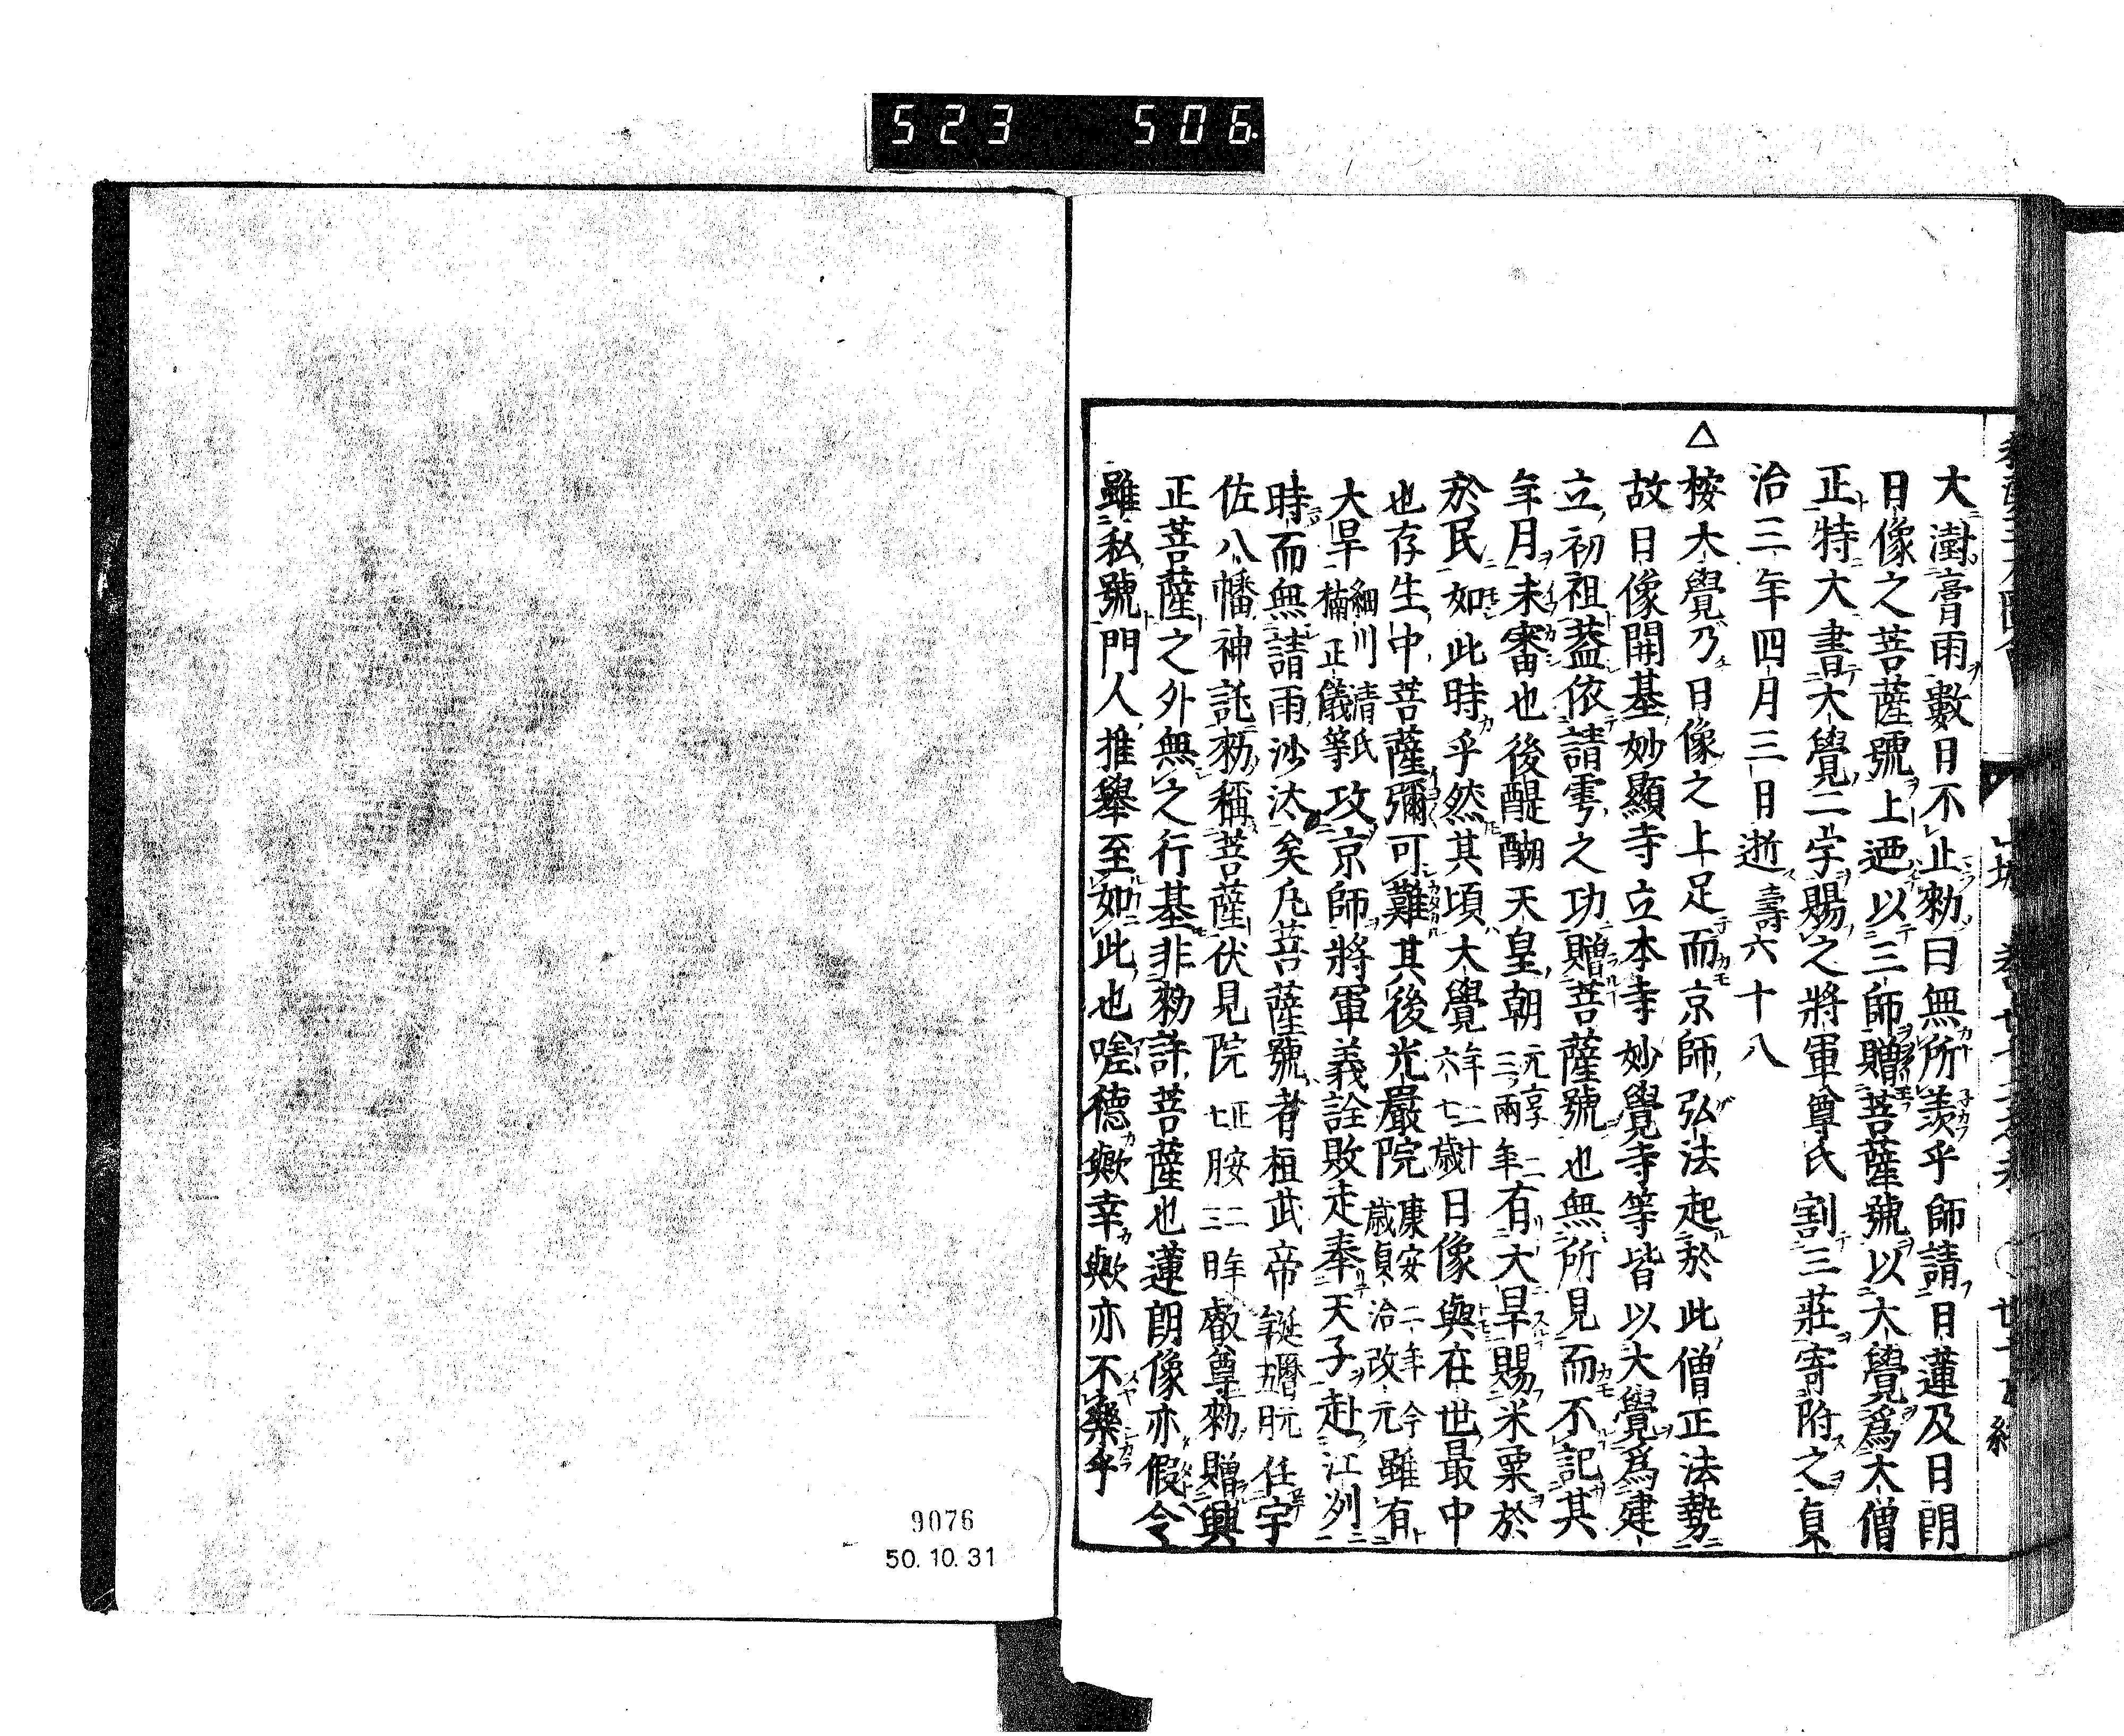 523 506
大澍膏雨數日不止勅曰無所羨乎師請日蓮及日朗
日像之菩薩號上迺以三師贈菩薩號以大覺爲大僧
正特大書大覺二字賜之將軍尊氏割三莊寄附之貞
治三年四月三日逝壽六十八
△按大覺乃日像之上足而京師弘法起於此僧正法勢
故日像開基妙顯寺立本寺妙覺寺等皆以大覺爲建
立初祖蓋依請雩之功贈菩薩號也無所見而不記其
年月未審也後醍醐天皇朝元亨二三兩年有大旱賜米粟於
於民如此時乎然其頃大覺年二十六七歲日像與在世最中
也存生中菩薩彌可難其後光嚴院康安二年今歲貞治改元雖有
大旱細川清氏楠正儀等攻京師將軍義詮敗走奉天子赴江列
時而無請雨沙汰矣凡菩薩號者桓武帝延暦元年五月任宇
佐八幡神託勅稱菩薩伏見院正安二年七月三日叡尊勅贈興
正菩薩之外無之行基非勅許菩薩也蓮朗像亦假令
雖私號門人推舉至如此也嗟德歟幸歟亦不樂乎
9076
50.10.31